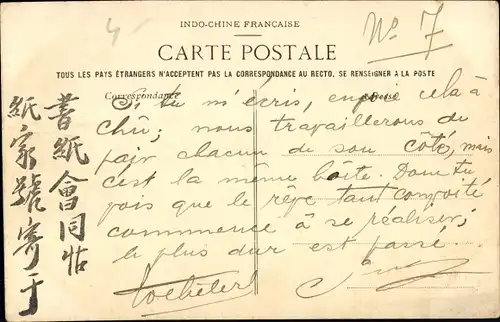 INDO-CHINE FRANÇAISE
4
Nº 7
CARTE POSTALE
TOUS LES PAYS ÉTRANGERS N'ACCEPTENT PAS LA CORRESPONDANCE AU RECTO, SE RENSEIGNER A LA POSTE
Correspondance
Adresse
Si tu m'écris, envoie cela à
chû; nous travaillerons de
pair chacun de son côté, mais
c'est la même boîte. Donc tu
vois que le rêve tant convoité
commence à se réaliser;
le plus dur est passé.
書紙會同帖
紙家號寄于